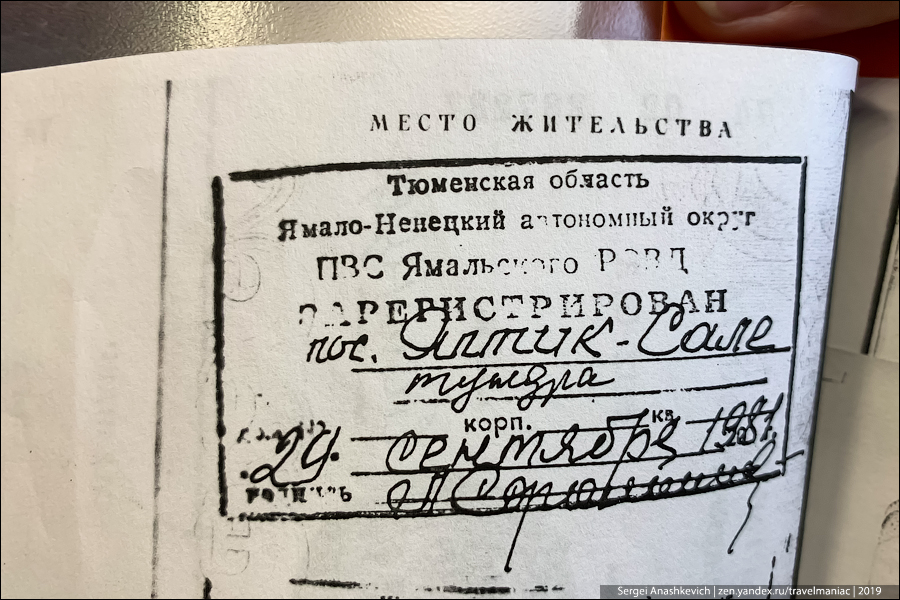 МЕСТО ЖИТЕЛЬСТВА
Тюменская область
Ямало-Ненецкий автономный округ
ПВС Ямальского РОВД
ЗАРЕГИСТРИРОВАН
пос. Яптик-Сале
тундра
корп. кв
29. сентября 1981.
Sergei Anashkevich | zen.yandex.ru/travelmaniac | 2019